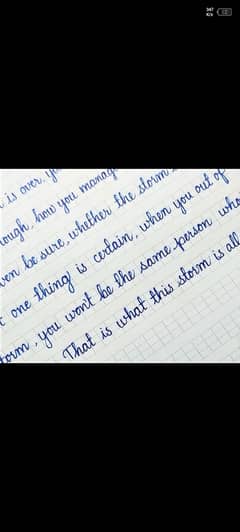 is over, you
ough, how you manag
ven be sure, whether the storm
one thing is certain, when you out of
torm, you won't be the same person who
That is what this storm is all